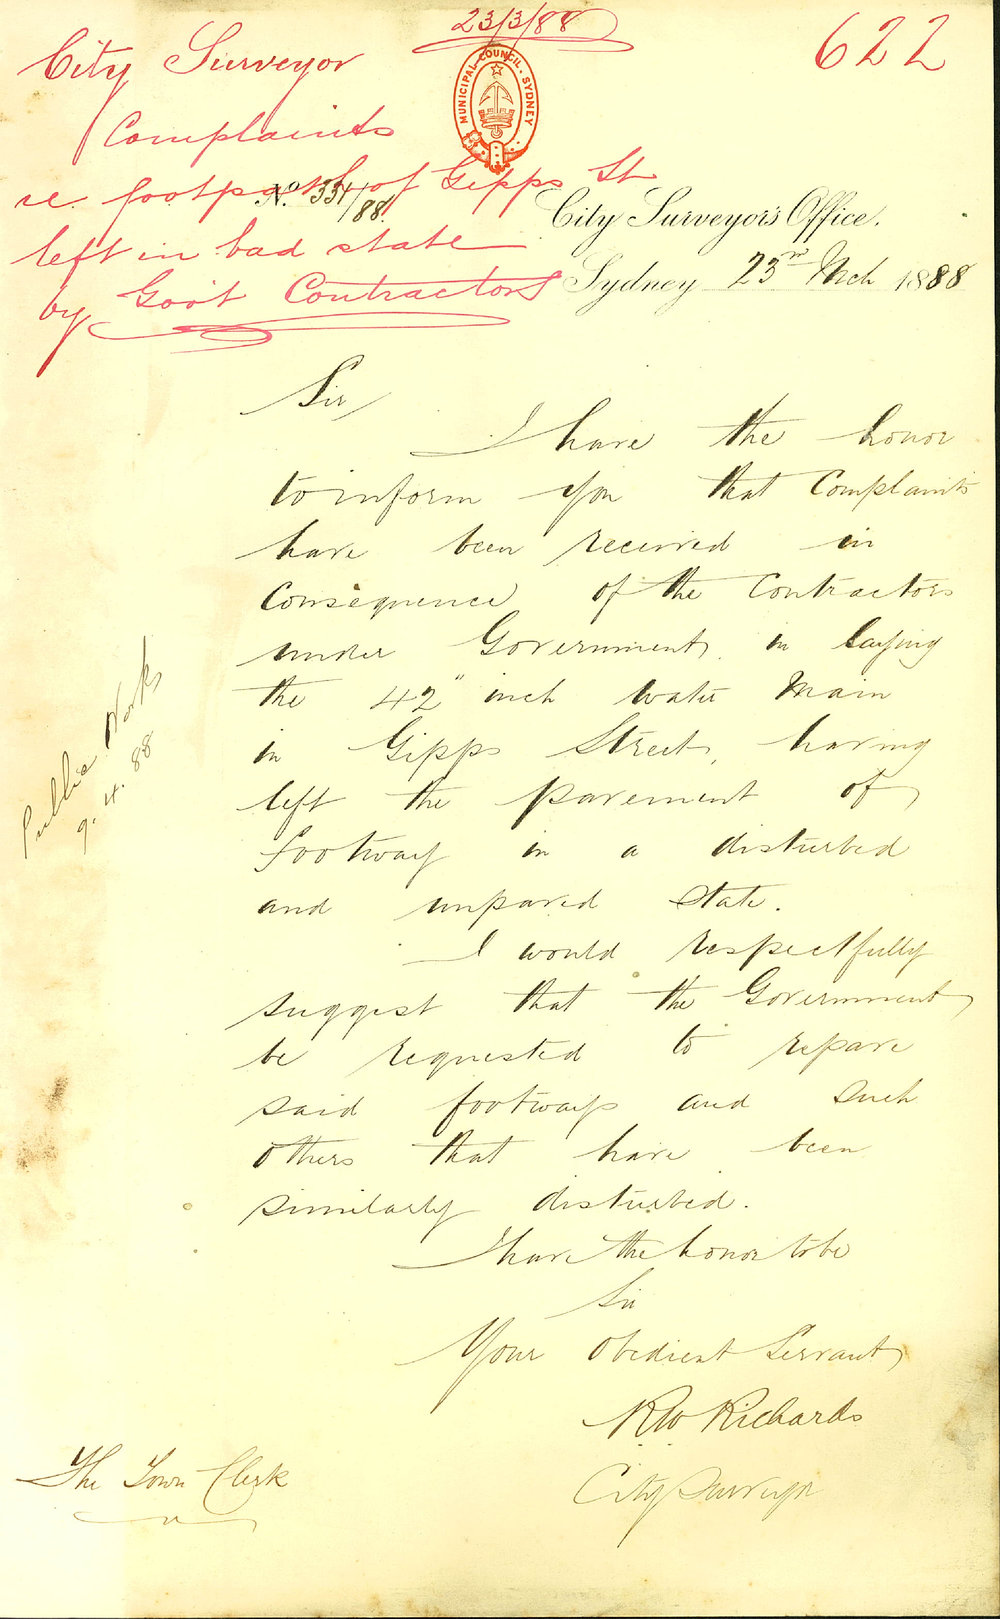 23/3/88
622
City Surveyor
Complaints
re. footpath of Gipps St
left in bad state
by Gov't Contractors
MUNICIPAL COUNCIL. SYDNEY
No. 334/88.
City Surveyor's Office.
Sydney 23rd Mch 1888
Sir,
I have the honor
to inform you that Complaints
have been received in
Consequence of the Contractors
under Government, in laying
the 42" inch water Main
in Gipps Street, having
left the pavement of
footway in a disturbed
and unpaved state.
I would respectfully
suggest that the Government
be requested to repave
said footways and such
others that have been
similarly disturbed.
I have the honor to be
Sir
Your Obedient Servant
RW Richards
City Surveyor
The Town Clerk
Public Works
9.4.88